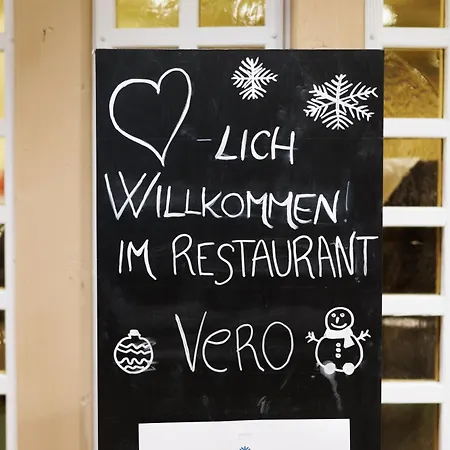 -LICH
WILLKOMMEN!
IM RESTAURANT
VERO